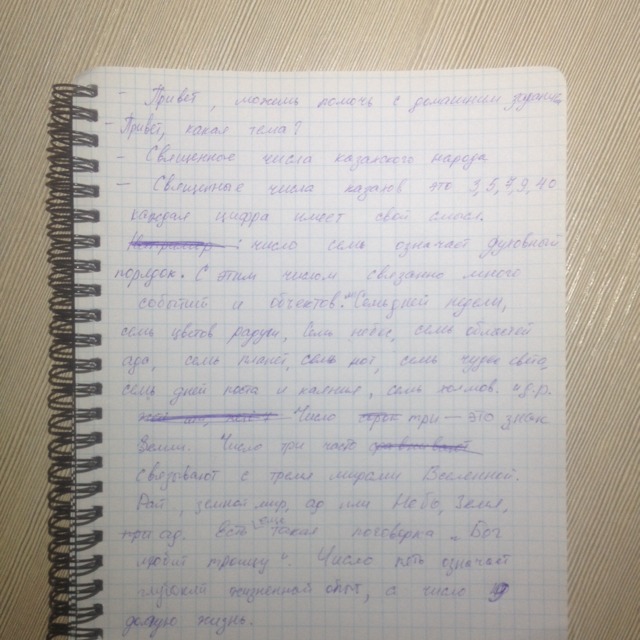 - Привет, можешь помочь с домашним заданием
- Привет, какая тема?
- Священное числа казахского народа
- Священные числа казахов это 3, 5, 7, 9, 40
каждая цифра имеет свой смысл.
: число семь означает духовный
порядок. С этим числом связанно много
событий и объектов. Семь дней недели,
семь цветов радуги, семь небес, семь областей
ада, семь планет, семь нот, семь чудес света,
семь дней поста и каяния, семь холмов. и д.р.
Число три — это знак
Земли. Число три часто
связывают с тремя мирами Вселенной.
Рай, земной мир, ад или Небо, Земля,
ад. Есть еще такая поговорка „Бог
любит троицу“. Число пять означает
глубокий жизненной опыт, а число 9
долгую жизнь.